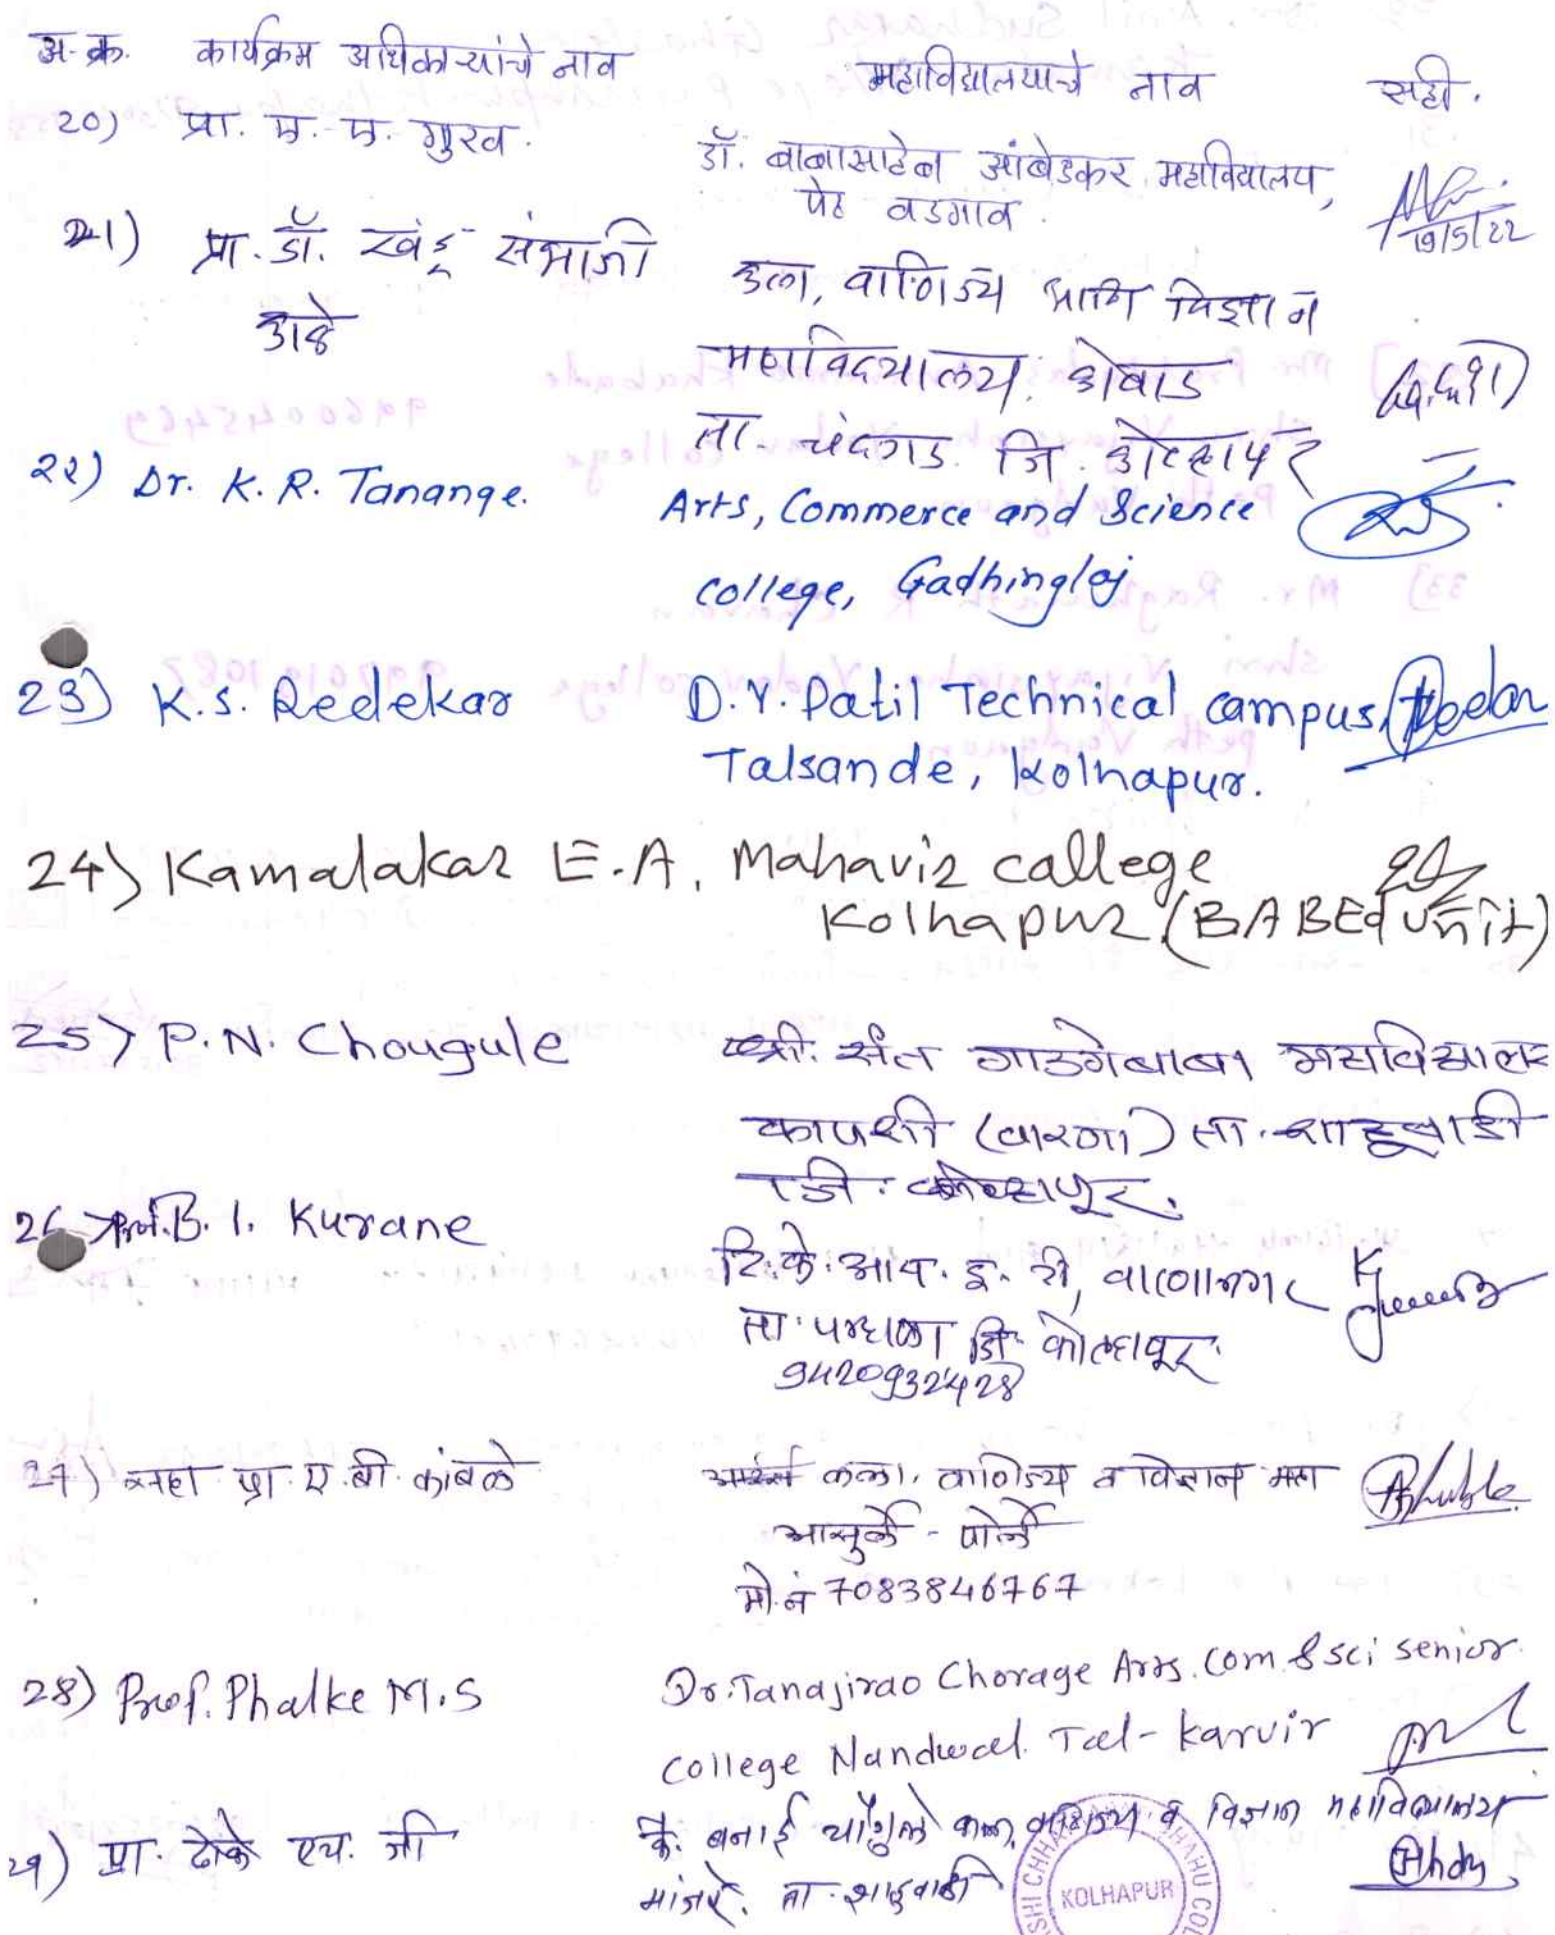 अ.क्र. कार्यक्रम अधिकाऱ्यांचे नाव महाविद्यालयाचे नाव सही.
20) प्रा. ए. ए. गुरव. डॉ. बाबासाहेब आंबेडकर महाविद्यालय,
पेठ वडगाव.
19/5/22
21) प्रा. डॉ. खंडू संभाजी कला, वाणिज्य आणि विज्ञान
महाविद्यालय, कोवाड
ता. चंदगड जि. कोल्हापूर
22) Dr. K. R. Tanange. Arts, Commerce and Science
College, Gadhinglaj
23) K.S. Redekar D.Y. Patil Technical campus,
Talsande, Kolhapur.
24) Kamalakar E.A. Mahavir callege
Kolhapur (BABEd unit)
25) P.N. Chougule श्री. संत गाडगेबाबा महाविद्यालय
कापशी (वारणा) ता. शाहूवाडी
जि. कोल्हापूर.
26) Prof. B. I. Kurane टि. के. आय. इ. टी, वारणानगर
ता. पन्हाळा जि. कोल्हापूर.
9420932428
27) सहा प्रा. ए. बी. कांबळे कला, वाणिज्य व विज्ञान महा
आसुर्ले - पोर्ले
मो. नं 7083846767
28) Prof. Phalke M.S Dr. Tanajirao Chorage Arts. Com & Sci senior
College Nandwal. Tal- Karvir
29) प्रा. ढोके एच. जी कै. बनाई चौगुले कला, वाणिज्य व विज्ञान महाविद्यालय
मांजरे. ता. शाहुवाडी
KOLHAPUR